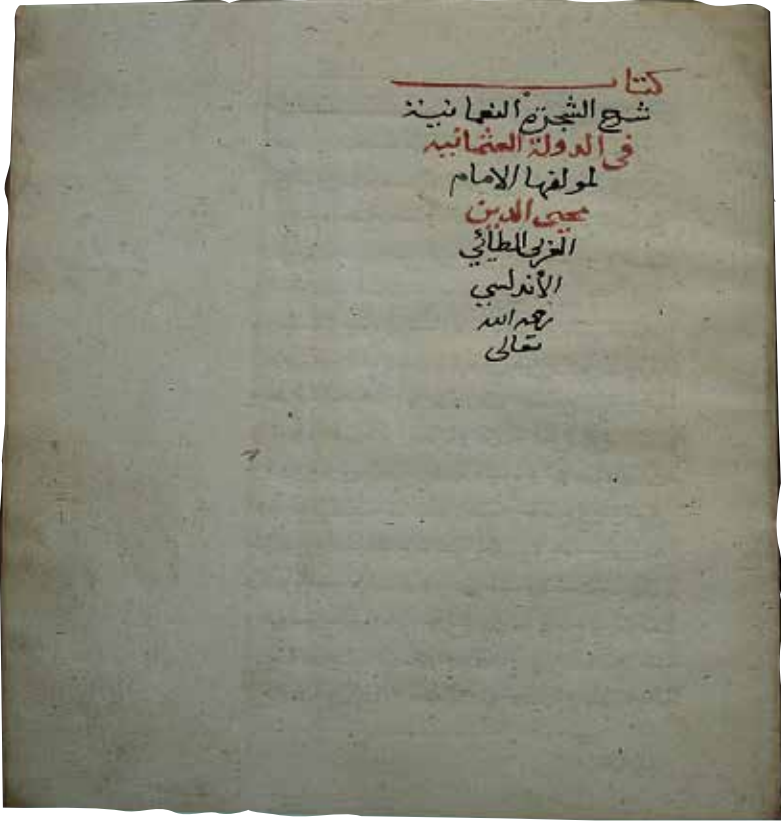 كتاب
شرح الشجرة النعمانية
في الدولة العثمانيه
لمولفها الامام
محيى الدين
العربى الطائي
الأندلسي
رحمه الله
تعالى